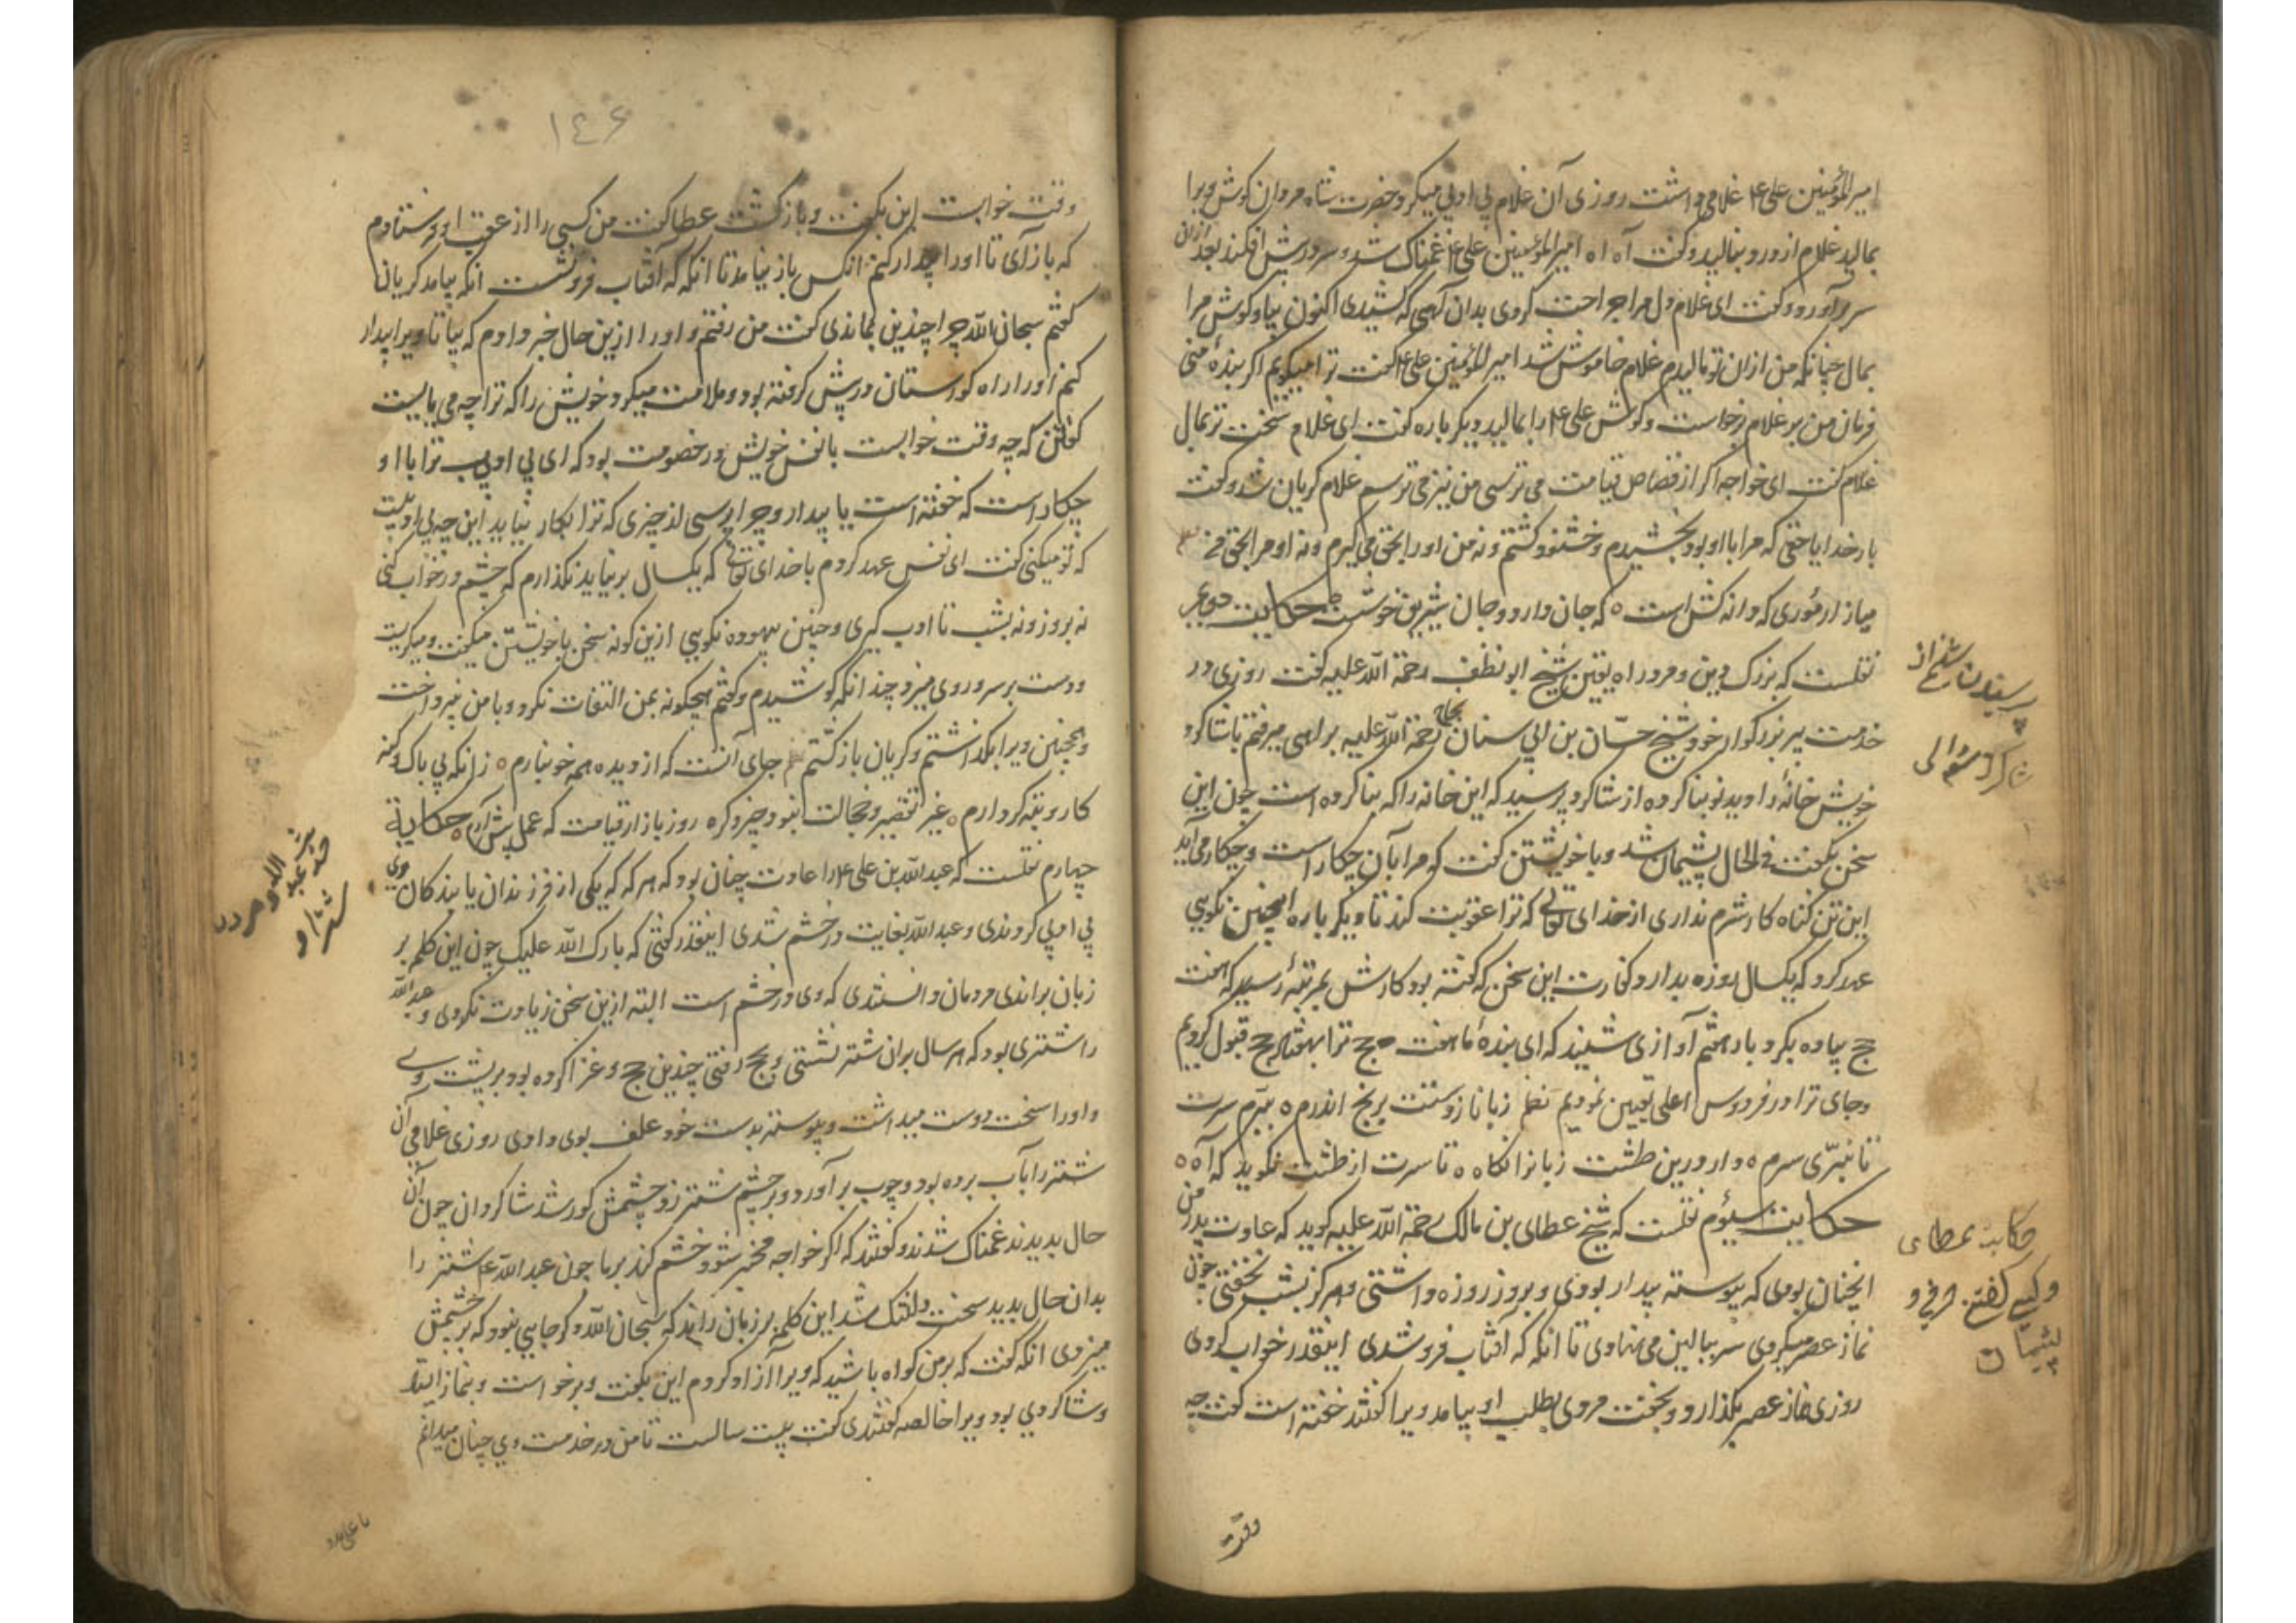 امیرالمؤمنین علی ع غلامی داشت روزی آن غلام بی ادبی میکرد حضرت شاه مردان کوش ویرا
بمالید غلام از درد بنالید و کفت آه اه امیرالمؤمنین علی ع غمناک شد و سر در پیش افکند بعد ازان
سر برآورد و کفت ای غلام دل مرا جراحت کردی بدان آهی که کشیدی اکنون بیا و کوش مرا
بمال چنانکه من ازان تو مالیدم غلام خاموش شد امیرالمؤمنین علی ع کفت ترا میکویم اکر بندهٔ منی
فرمان من بر غلام برخواست و کوش علی ع را بمالید دیکر باره کفت ای غلام سخت تر بمال
غلام کفت ای خواجه اکر از قصاص قیامت می ترسی من نیز می ترسم غلام کریان شد و کفت
بار خدایا حقی که مرا با او بود بخشیدم و خشنود کشتم و نه من اورا بحق می کیرم و نه او مرا بحق
میازار موری که دانه کش است ه که جان دارد و جان شیرین خوشست حکایت دویم
نقلست که بزرک دین و مرد راه یقین شیخ ابو نظف رحمة الله علیه کفت روزی در
خدمت پیر بزرکوار خود شیخ حسّان بن ابی سنان رحمة الله علیه براهی میرفتم با شاکرد
خویش خانهٔ را دید نو بنا کرده از شاکرد پرسید که این خانه را که بنا کرده است چون این
سخن بکفت فی الحال پشیمان شد و با خویشتن کفت که مرا بآن چکار است و چکار می آید
این تن کناه کار شرم نداری از خدای تعالی که ترا عقوبت کند تا دیکر باره اینچنین نکویی
عهد کرد که یکسال روزه بدارد کفارت این سخن که کفته بود کارش بمرتبهٔ رسید که هفت
حج پیاده بکرد بار هفتم آوازی شنیند که ای بندهٔ ما هفت حج ترا بهفتاد حج قبول کردیم
وجای ترا در فردوس اعلی تعیین نمودیم نظم زبانا ز دستت برنج اندرم ه ببرم سرت
تا نبرّی سرم ه دار درین طشت زبانرا نکاه ه تا سرت از طشت نکوید که آه ه
حکایت سیوم نقلست که شیخ عطای بن مالک رحمة الله علیه کوید که عادت پدر من
انچنان بودی که پیوسته بیدار بودی و بروز روزه داشتی و هرکز بشب نخفتی چون
نماز عصر میکردی سر ببالین می نهادی تا انکه که افتاب فرو شدی اینقدر خواب کردی
روزی نماز عصر بکذارد و بخفت مردی بطلب او بیامد ویرا کفتند خفته است کفت چه
وقت
پرسیدن شیخ از
شاکرد سوالی
حکایت عطای
و کسی کفتن حرفی و
پشیمان
۱۴۶
وقت خوابست این بکفت و بازکشت عطا کفت من کسی را از عقب او فرستادم
که بازآی تا اورا بیدار کنم انکس باز نیامد تا انکه که افتاب فرو نشست انکه بیامد کریان
کفتم سبحان الله چرا چندین بماندی کفت من رفتم و اورا ازین حال خبر دادم که بیا تا ویرا بیدار
کنم او را راه کورستان در پیش کرفته بود و ملامت میکرد خویش را که ترا چه می بایست
کفتن که چه وقت خوابست با نفس خویش در خصومت بود که ای بی ادب ترا با او
چکار است که خفته است یا بیدار و چرا پرسی از چیزی که ترا بکار نیاید این چه بی ادبیست
که تو میکنی کفت ای نفس عهد کردم با خدای تعالی که یکسال برنیاید نکذارم که چشم در خواب کنی
نه بروز و نه بشب تا ادب کیری و چنین بیهوده نکویی ازین کونه سخن با خویشتن میکفت و میکریست
و دست بر سر و روی میزد چندانکه کوشیدم و کفتم هیچکونه بمن التفات نکرد و با من نپرداخت
وهمچنین ویرا بکذاشتم و کریان بازکشتم جای آنست که از دیده همه خون بارم ه زانکه بی باک و کنه
کار و تبه کردارم ه غیر تقصیر و خجالت نبود چیز دکر ه روز بازار قیامت که عمل پیش آرم ه حکایة
چهارم نقلست که عبد الله بن علی ع را عادت چنان بود که هر که که یکی از فرزندان یا بندکان وی
بی ادبی کردندی و عبد الله بغایت در خشم شدی اینقدر کفتی که بارک الله علیک چون این کلمه بر
زبان براندی مردمان دانستندی که وی در خشم است البته ازین سخن زیادت نکردی و عبد الله
را شتری بود که هر سال بران شتر نشستی و بحج رفتی چندین حج و غزا کرده بود بر پشت وی
و اورا سخت دوست میداشت و پیوسته بدست خود علف بوی دادی روزی غلامی آن
شتر را بآب برده بود و چوب برآورد و بر چشم شتر زد و چشمش کور شد شاکردان چون آن
حال بدیدند غمناک شدند و کفتند که اکر خواجه مخبر شود خشم کند بر ما چون عبد الله ع شتر را
بدان حال بدید سخت دلتنک شد این کلمه بر زبان راند که سبحان الله دکر جایی نبود که بر چشمش
میزدی انکه کفت که بر من کواه باشید که ویرا آزاد کردم این بکفت و برخواست و بنماز ایستاد
و شاکردی بود ویرا خالصه کفتندی کفت بیست سالست تا من در خدمت وی چنان میدانم